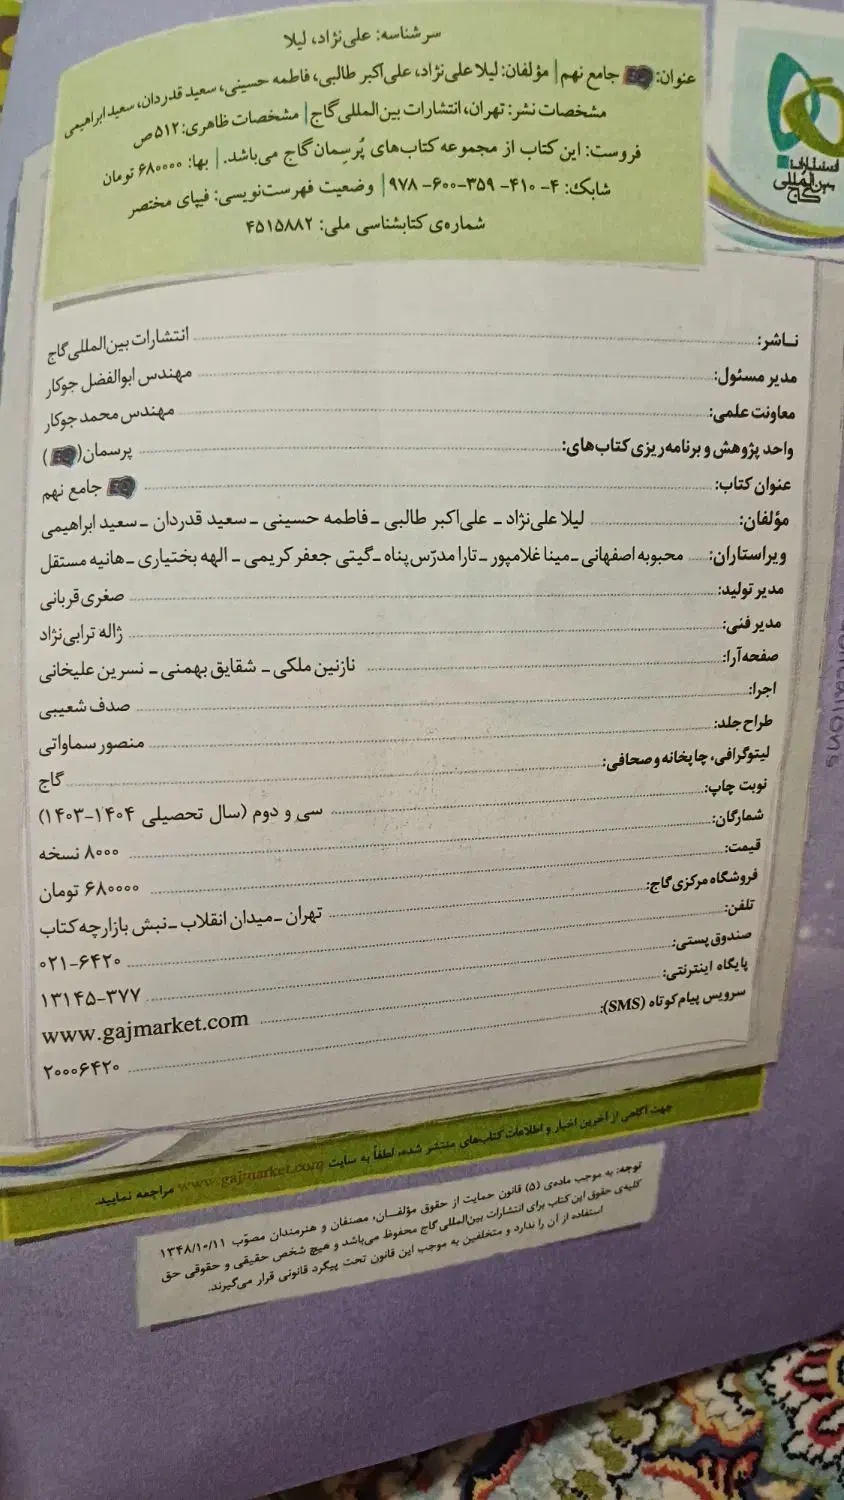 سرشناسه: علی‌نژاد، لیلا
عنوان: EQ جامع نهم | مؤلفان: لیلا علی‌نژاد، علی‌اکبر طالبی، فاطمه حسینی، سعید قدردان، سعید ابراهیمی
مشخصات نشر: تهران، انتشارات بین‌المللی گاج | مشخصات ظاهری: ۵۱۲ ص
فروست: این کتاب از مجموعه کتاب‌های پُرسِمان گاج می‌باشد. | بها: ۶۸۰۰۰۰ تومان
شابک: ۴- ۴۱۰- ۳۵۹-۶۰۰- ۹۷۸ | وضعیت فهرست‌نویسی: فیپای مختصر
شماره‌ی کتابشناسی ملی: ۴۵۱۵۸۸۲
انتشارات
بین‌المللی
گاج
ناشر: انتشارات بین‌المللی گاج
مدیر مسئول: مهندس ابوالفضل جوکار
معاونت علمی: مهندس محمد جوکار
واحد پژوهش و برنامه‌ریزی کتاب‌های: پرسمان (EQ)
عنوان کتاب: EQ جامع نهم
مؤلفان: لیلا علی‌نژاد ـ علی‌اکبر طالبی ـ فاطمه حسینی ـ سعید قدردان ـ سعید ابراهیمی
ویراستاران: محبوبه اصفهانی ـ مینا غلامپور ـ تارا مدرّس‌پناه ـ گیتی جعفر کریمی ـ الهه بختیاری ـ هانیه مستقل
مدیر تولید: صغری قربانی
مدیر فنی: ژاله ترابی‌نژاد
صفحه‌آرا: نازنین ملکی ـ شقایق بهمنی ـ نسرین علیخانی
اجرا: صدف شعیبی
طراح جلد: منصور سماواتی
لیتوگرافی، چاپخانه و صحافی: گاج
نوبت چاپ: سی و دوم (سال تحصیلی ۱۴۰۴-۱۴۰۳)
شمارگان: ۸۰۰۰ نسخه
قیمت: ۶۸۰۰۰۰ تومان
فروشگاه مرکزی گاج: تهران ـ میدان انقلاب ـ نبش بازارچه کتاب
تلفن: ۰۲۱-۶۴۲۰
صندوق پستی: ۱۳۱۴۵-۳۷۷
پایگاه اینترنتی: www.gajmarket.com
سرویس پیام کوتاه (SMS): ۲۰۰۰۶۴۲۰
جهت آگاهی از آخرین اخبار و اطلاعات کتاب‌های منتشر شده، لطفاً به سایت www.gajmarket.com مراجعه نمایید.
توجه: به موجب ماده‌ی (۵) قانون حمایت از حقوق مؤلفــان، مصنفان و هنرمندان مصوّب ۱۳۴۸/۱۰/۱۱
کلیه‌ی حقوق این کتاب برای انتشارات بین‌المللی گاج محفوظ می‌باشد و هیچ شخص حقیقی و حقوقی حق
استفاده از آن را ندارد و متخلفین به موجب این قانون تحت پیگرد قانونی قرار می‌گیرند.